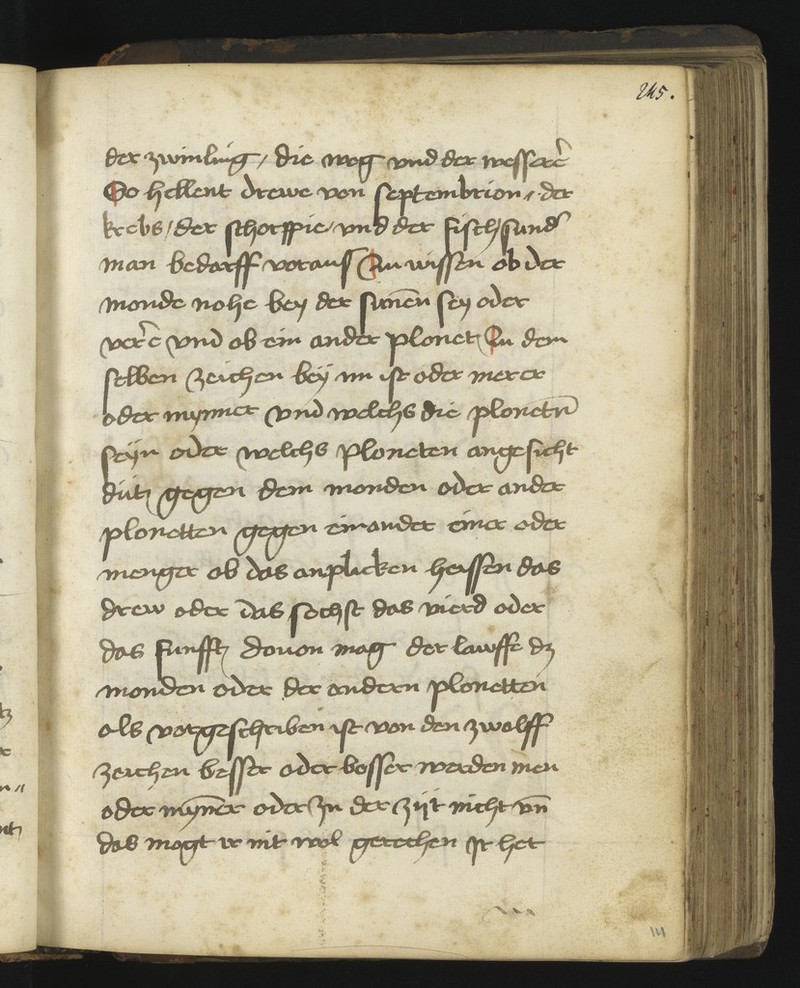 245.
der zwinling / die wog vnd der wesserer̄
So hellent drewe von septembrion // der
krebs / der schorppie / vnd der fisch / sund̄
man bedarff voraus Zu wissen ob der
monde nohe bey der sunēn sey oder
verr̄e vnd ob ein ander plonet Zu dem
selben zeichen bey im ist oder merer
oder mynner vnd welchs die plonetn̄
seyn oder welchs ploneten angesicht
dütz gegen dem monden oder ander
plonetten gegen einander einer oder
menger ob das anplicken heissen das
drew oder das sechst das vierd oder
das funfftz douon mag der lawffe dz
monden oder der andern plonetten
als vorgeschriben ist von den zwolff
zeichen besser oder bosser werden men
oder mȳner oder Zu der zijt nicht vn̄
das mogt ir nit wol gerechen Ir het